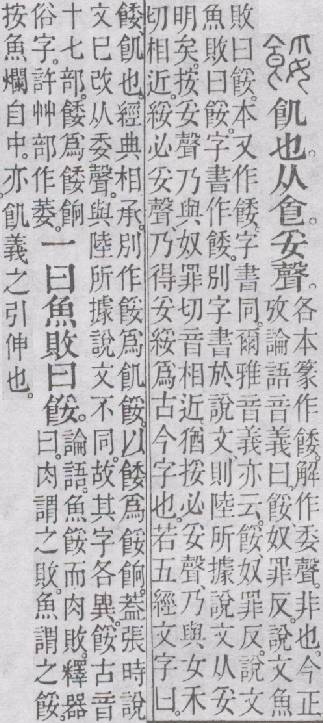 餒飢也。从食妥聲。各本篆作餧。解作委聲。非也。今正
攷論語音義曰。餒奴罪反。說文魚
敗曰餒。本又作餧。字書同。爾雅音義亦云。餒奴罪反。說文
魚敗曰餒。字書作餧。別字書於說文。則陸所據說文从妥
明矣。按妥聲乃與奴罪切音相近。猶挼必妥聲乃與女禾
切相近。綏必妥聲乃得妥綏爲古今字也。若五經文字曰。
餧飢也。經典相承。別作餒爲飢餒。以餧爲餧餉。葢張時說
文已改从委聲。與陸所據說文不同。故其字各異。餒古音
十七部。餧爲餧餉
俗字。許艸部作萎。
一曰魚敗曰餒。論語。魚餒而肉敗。釋器
曰。肉謂之敗。魚謂之餒。
按魚爛自中。亦飢義之引伸也。